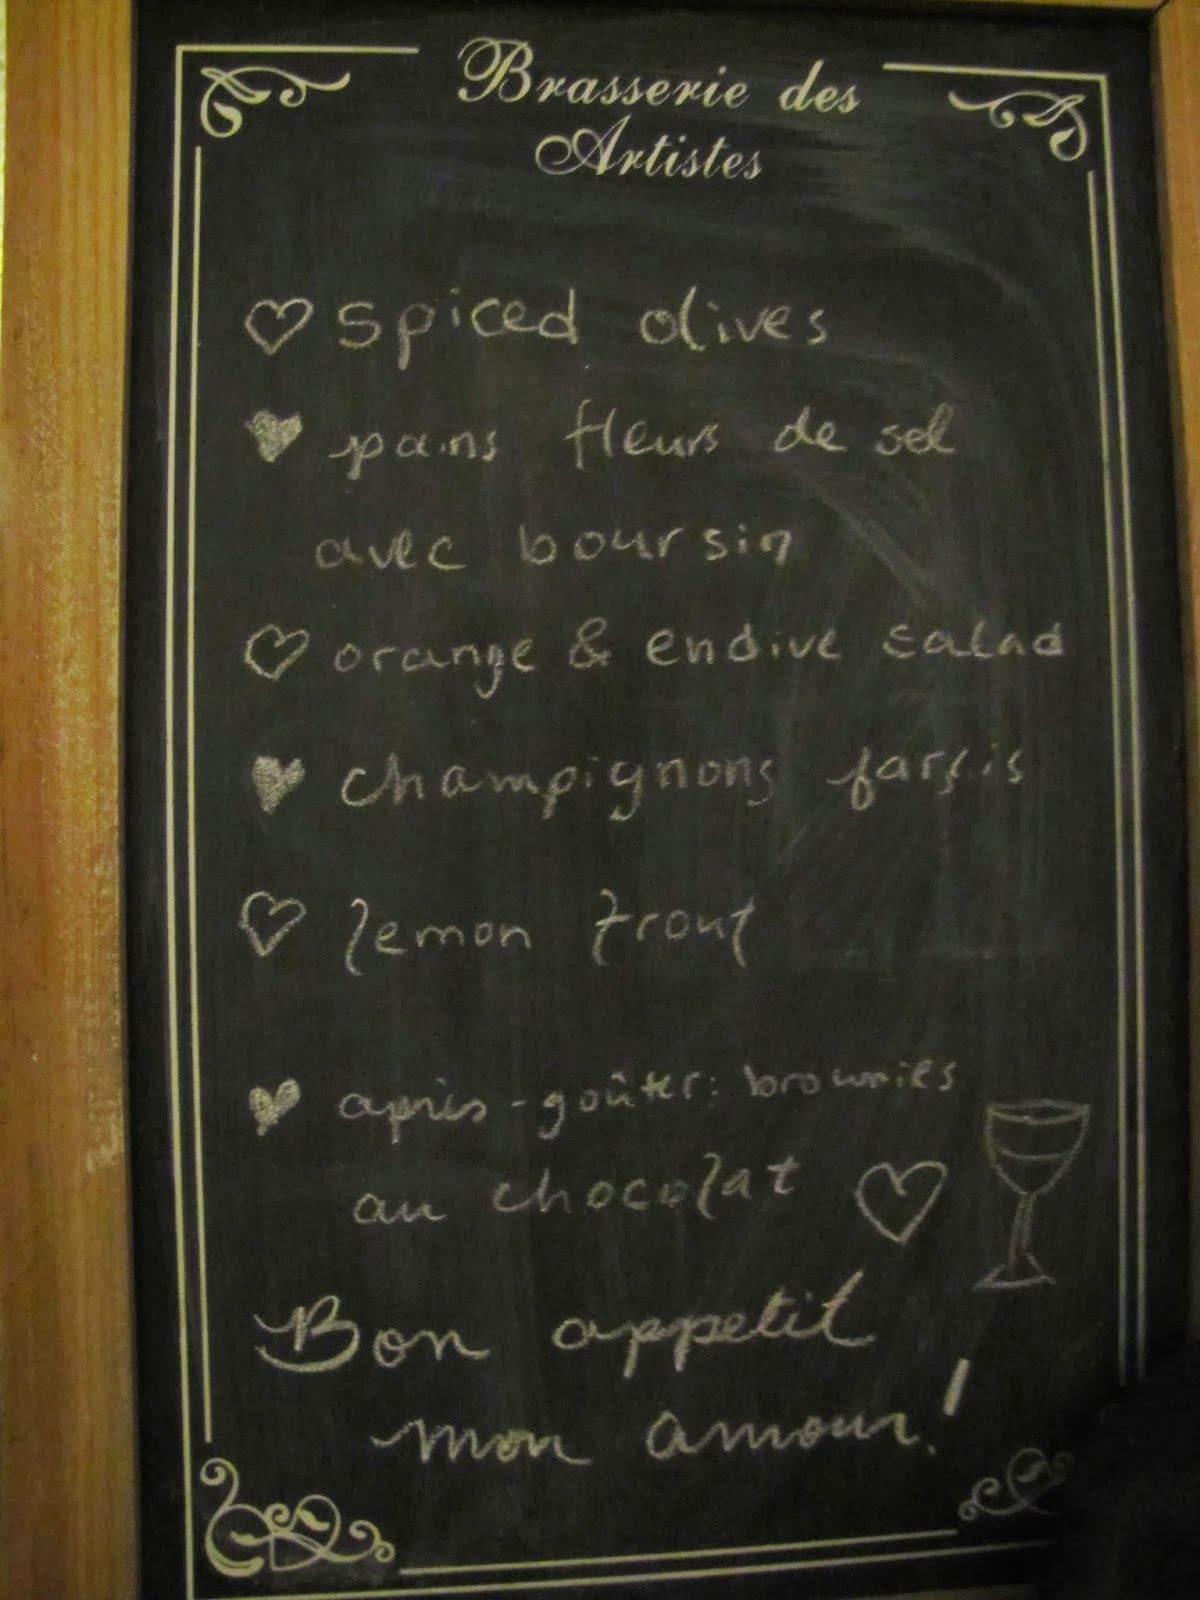 Brasserie des
Artistes
spiced olives
pains fleurs de sel
avec boursin
orange & endive salad
champignons farsis
lemon trout
après-goûter: brownies
au chocolat
Bon appetit
mon amour!